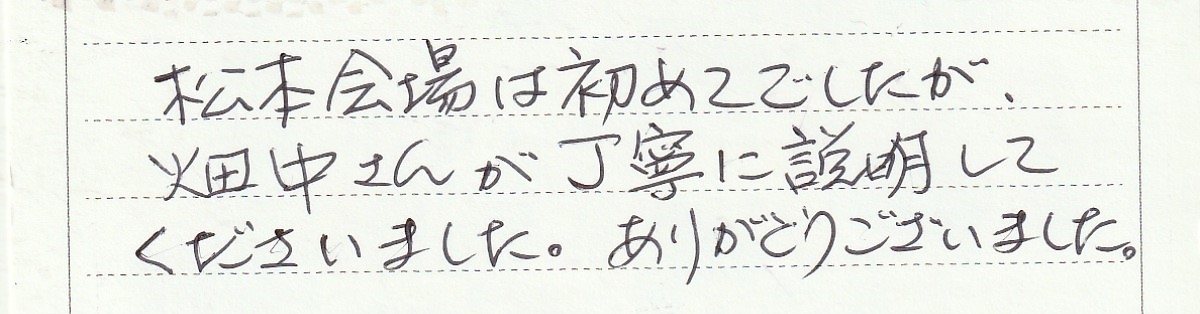 松本会場は初めてでしたが、
畑中さんが丁寧に説明して
くださいました。ありがとうございました。